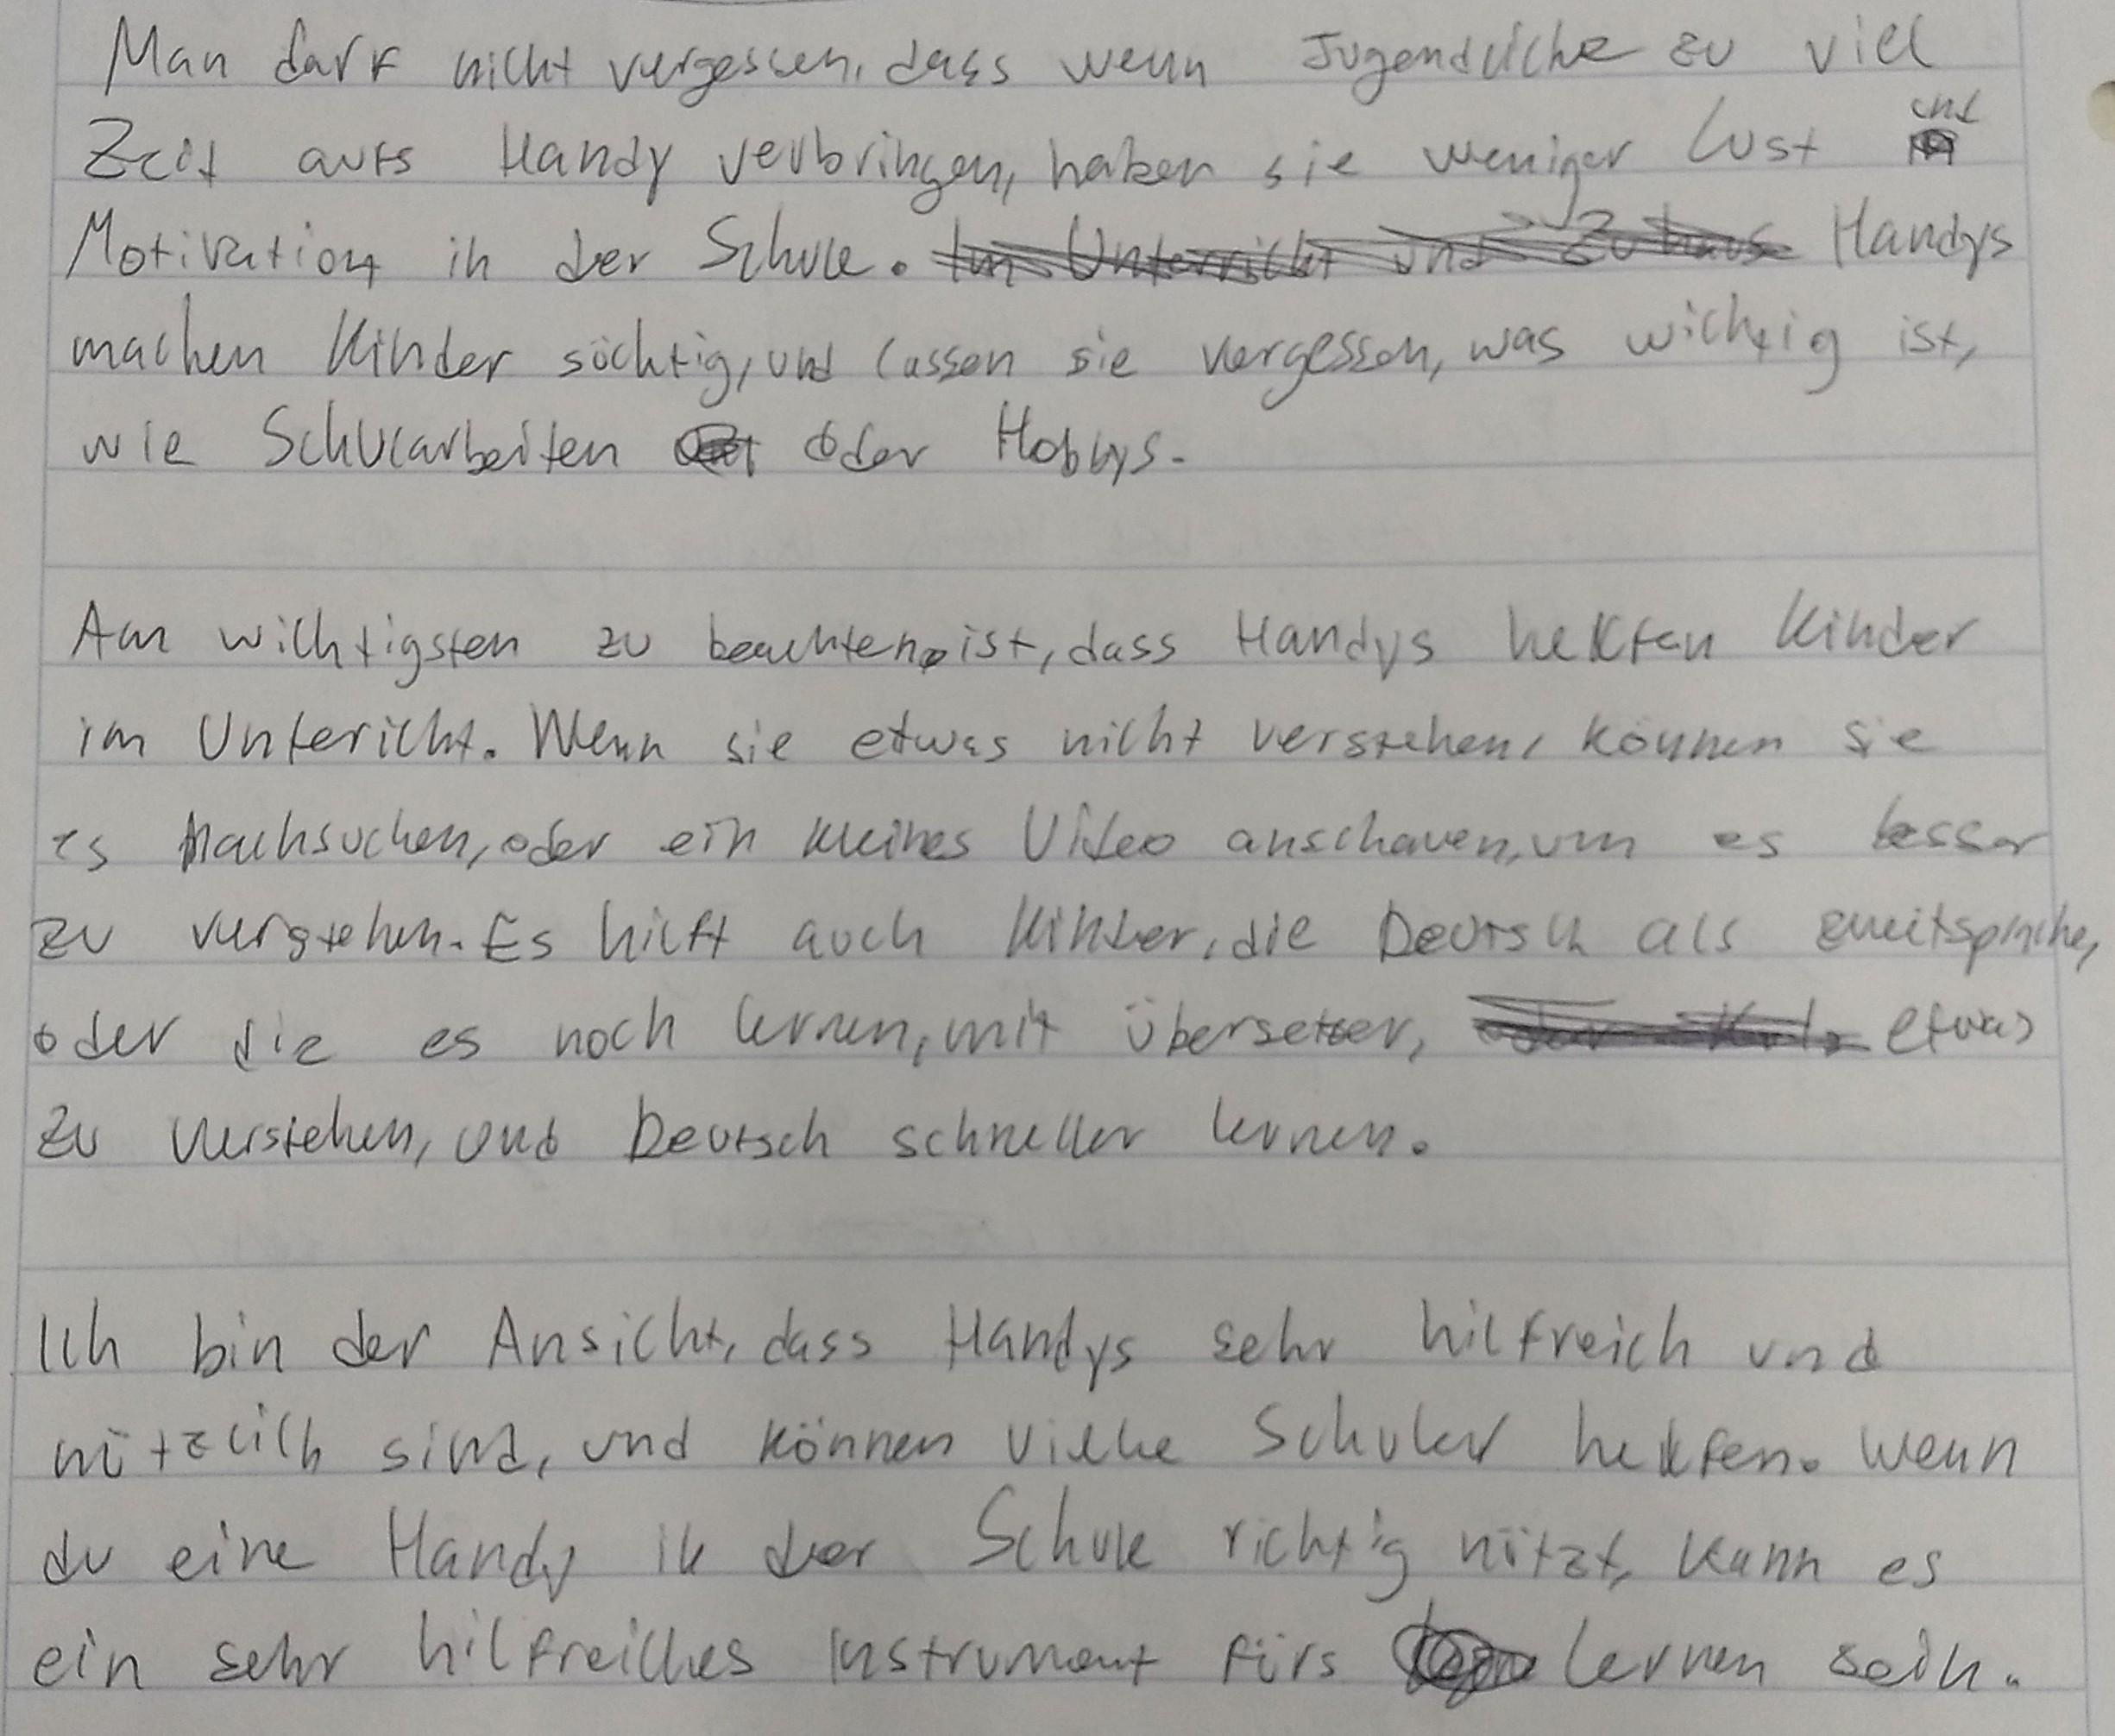 Man darf nicht vergessen, dass wenn Jugendliche zu viel
Zeit aufs Handy verbringen, haben sie weniger Lust und
Motivation in der Schule. Im Unterricht und Zuhause Handys
machen Kinder süchtig, und lassen sie vergessen, was wichtig ist,
wie Schularbeiten oder Hobbys.
Am wichtigsten zu beachten ist, dass Handys helfen Kinder
im Untericht. Wenn sie etwas nicht verstehen, können sie
es Nachsuchen, oder ein kleines Video anschauen, um es besser
zu verstehen. Es hilft auch Kinder, die Deutsch als zweitsprache,
oder die es noch lernen, mit übersetzer, etwas
zu verstehen, und Deutsch schneller lernen.
Ich bin der Ansicht, dass Handys sehr hilfreich und
nützlich sind, und können viele Schuler helfen. Wenn
du eine Handy in der Schule richtig nützt, kann es
ein sehr hilfreiches Instrument fürs lernen sein.